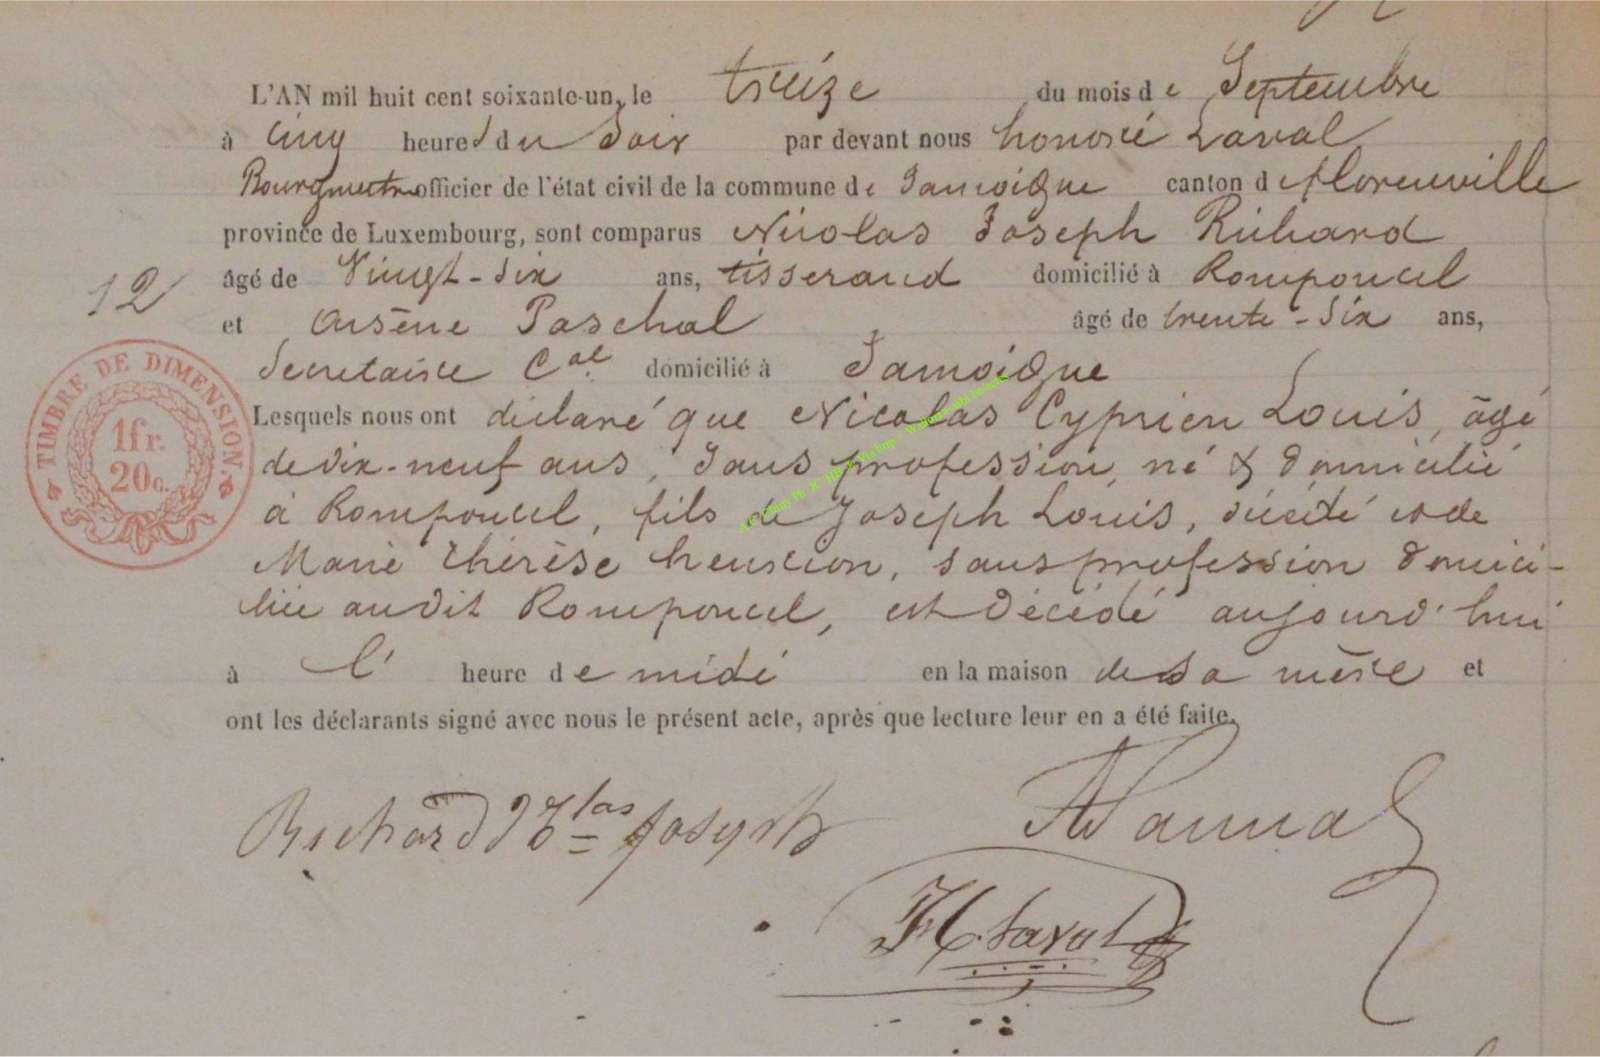 L'AN mil huit cent soixante-un, le treize du mois de Septembre
à cinq heures du Soir par devant nous honoré Laval
Bourgmestre officier de l'état civil de la commune de Jamoigne canton de florenville
province de Luxembourg, sont comparus Nicolas Joseph Richard
âgé de Vingt-six ans, tisserand domicilié à Romponcel
12
et Arsène Paschal âgé de trente-six ans,
Secretaire Cal domicilié à Jamoigne
Lesquels nous ont déclaré que Nicolas Cyprien Louis, âgé
de dix-neuf ans, sans profession, né & domicilié
à Romponcel, fils de Joseph Louis, décédé et de
Marie thérèse henrion, sans profession domici-
liée audit Romponcel, est décédé aujourd'hui
à l' heure de midi en la maison de sa mère et
ont les déclarants signé avec nous le présent acte, après que lecture leur en a été faite.
Richard Nlas Joseph
H. Laval
TIMBRE DE DIMENSION.
1fr.
20c.